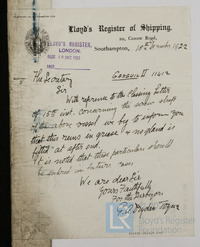 Lloyd's Register of Shipping,
20, Canute Road,
Southampton, 18th 1922
LLOYD'S REGISTER,
LONDON.
19 DEC 1922
The Secretary
Sir
With reference to the Classing letter
of 15th inst. concerning the screw shaft
of the above vessel we beg to inform you
that this runs in grease & no gland is
fitted at after end.
It is noted that these particulars should
be entered in future
We are dear Sir
Yours faithfully
For
Lloyd's Register
Foundation